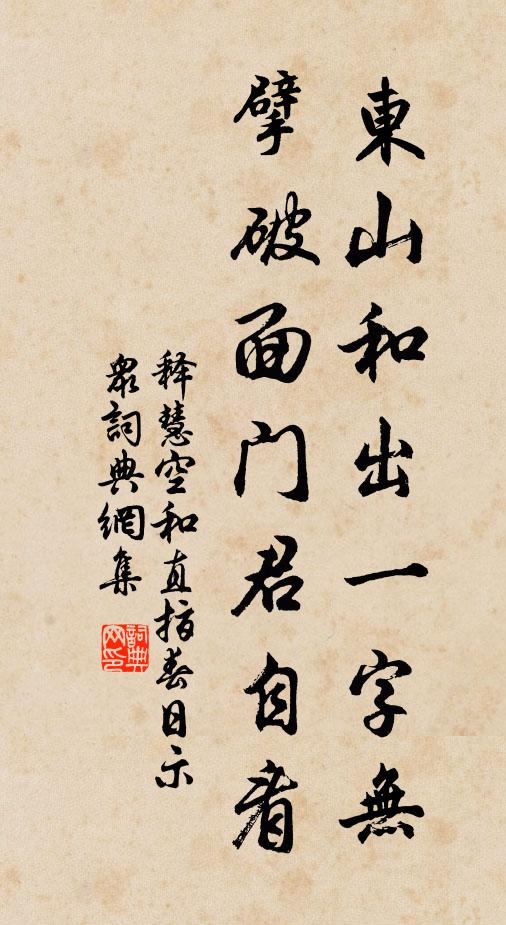 東山和出一字無
擘破面门君自看
释慧空和直指春日示
眾詞典網集
詞典網印